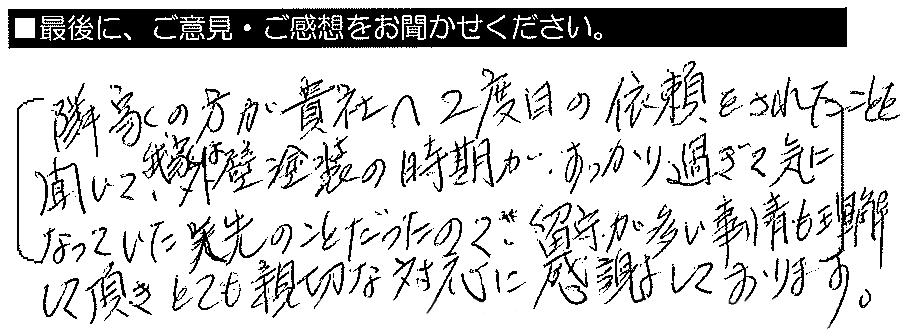 ■最後に、ご意見・ご感想をお聞かせください。
隣家の方が貴社へ2度目の依頼をされたことを
聞いて、我家は外壁塗装の時期が、すっかり過ぎて気に
なっていた矢先のことだったので、留守が多い事情も理解
して頂きとても親切な対応に感謝しております。